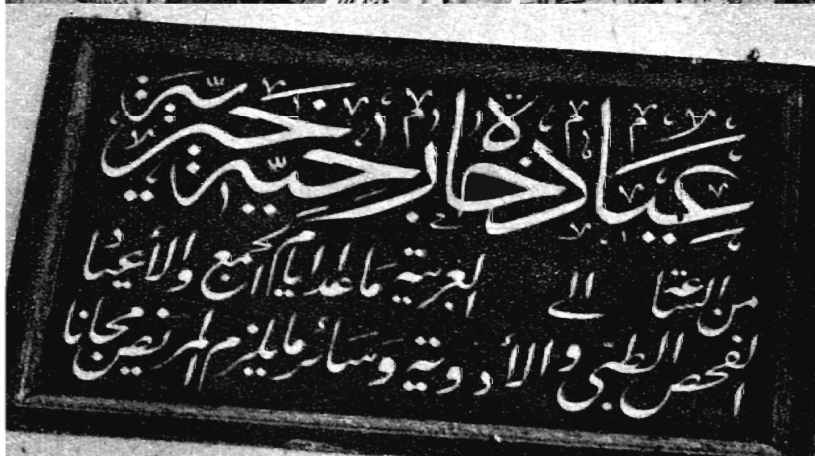 عيادة خارجية خيرية
من الساعة الى الغربية ماعدا ايام الجمع والأعياد
الفحص الطبي والأدوية وسائر مايلزم المريض مجانا